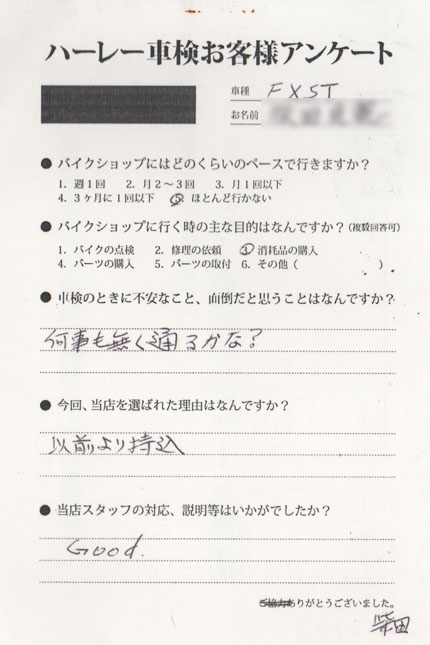 ハーレー車検お客様アンケート
車種 FXST
お名前
● バイクショップにはどのくらいのペースで行きますか？
1. 週1回 2. 月2〜3回 3. 月1回以下
4. 3ヶ月に1回以下 5. ほとんど行かない
● バイクショップに行く時の主な目的はなんですか？(複数回答可)
1. バイクの点検 2. 修理の依頼 3. 消耗品の購入
4. パーツの購入 5. パーツの取付 6. その他 ( )
● 車検のときに不安なこと、面倒だと思うことはなんですか？
何事も無く通るかな？
● 今回、当店を選ばれた理由はなんですか？
以前より持込
● 当店スタッフの対応、説明等はいかがでしたか？
Good.
ご協力ありがとうございました。
柴田